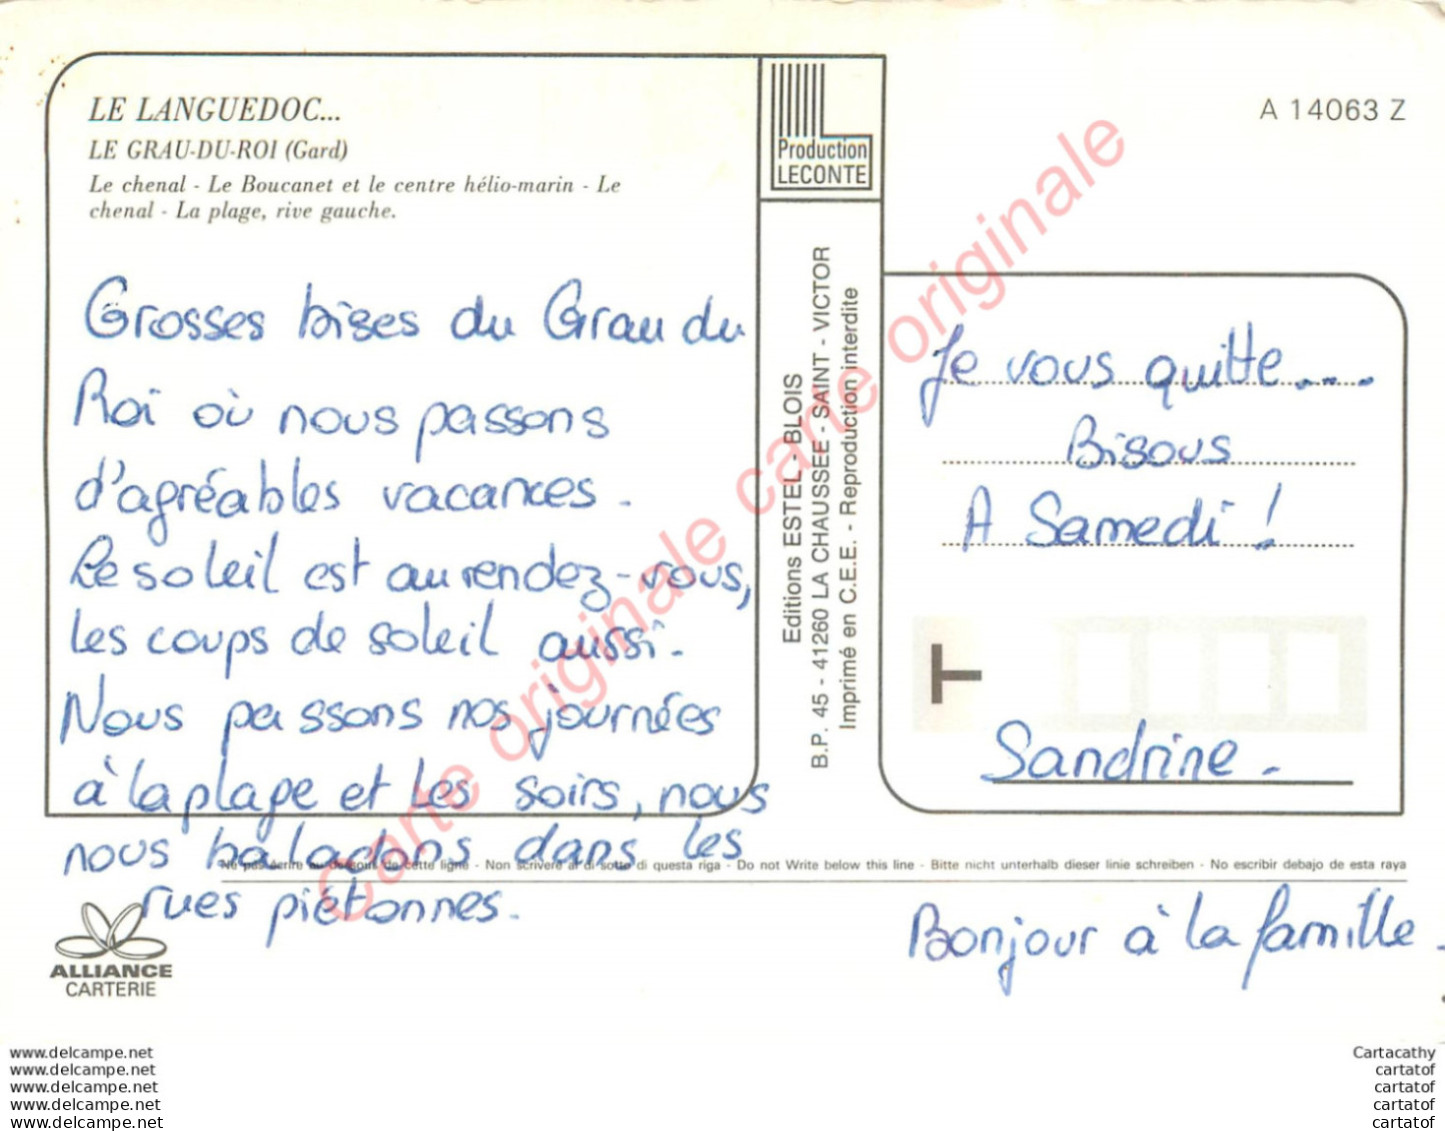 LE LANGUEDOC...
LE GRAU-DU-ROI (Gard)
Le chenal - Le Boucanet et le centre hélio-marin - Le
chenal - La plage, rive gauche.
Grosses bises du Grau du
Roi où nous passons
d'agréables vacances.
Le soleil est au rendez-vous,
les coups de soleil aussi.
Nous passons nos journées
à la plage et les soirs, nous
nous baladons dans les
rues piétonnes.
ALLIANCE
CARTERIE
Production
LECONTE
Editions ESTEL - BLOIS
B.P. 45 - 41260 LA CHAUSSEE - SAINT - VICTOR
Imprimé en C.E.E. - Reproduction interdite
A 14063 Z
Je vous quitte....
Bisous
A Samedi !
T
Sandrine.
Ne pas écrire au dessous de cette ligne - Non scrivere al di sotto di questa riga - Do not Write below this line - Bitte nicht unterhalb dieser linie schreiben - No escribir debajo de esta raya
Bonjour à la famille.
Carte originale carte originale
www.delcampe.net
www.delcampe.net
www.delcampe.net
www.delcampe.net
www.delcampe.net
Cartacathy
cartatof
cartatof
cartatof
cartatof